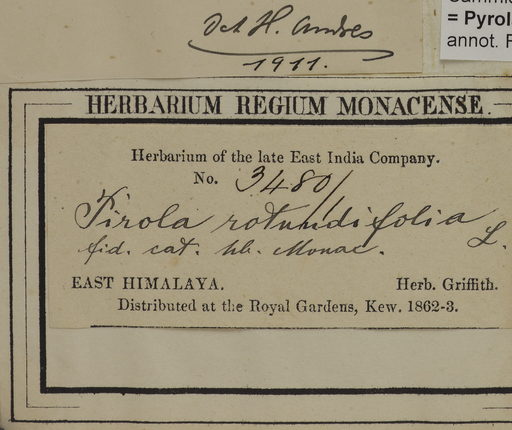 Det H. Andres
1911.
= Pyrol
annot.
HERBARIUM REGIUM MONACENSE.
Herbarium of the late East India Company.
No. 3480/1
Pirola rotundifolia L.
fid. cat. hb. Monac.
EAST HIMALAYA. Herb. Griffith.
Distributed at the Royal Gardens, Kew. 1862-3.